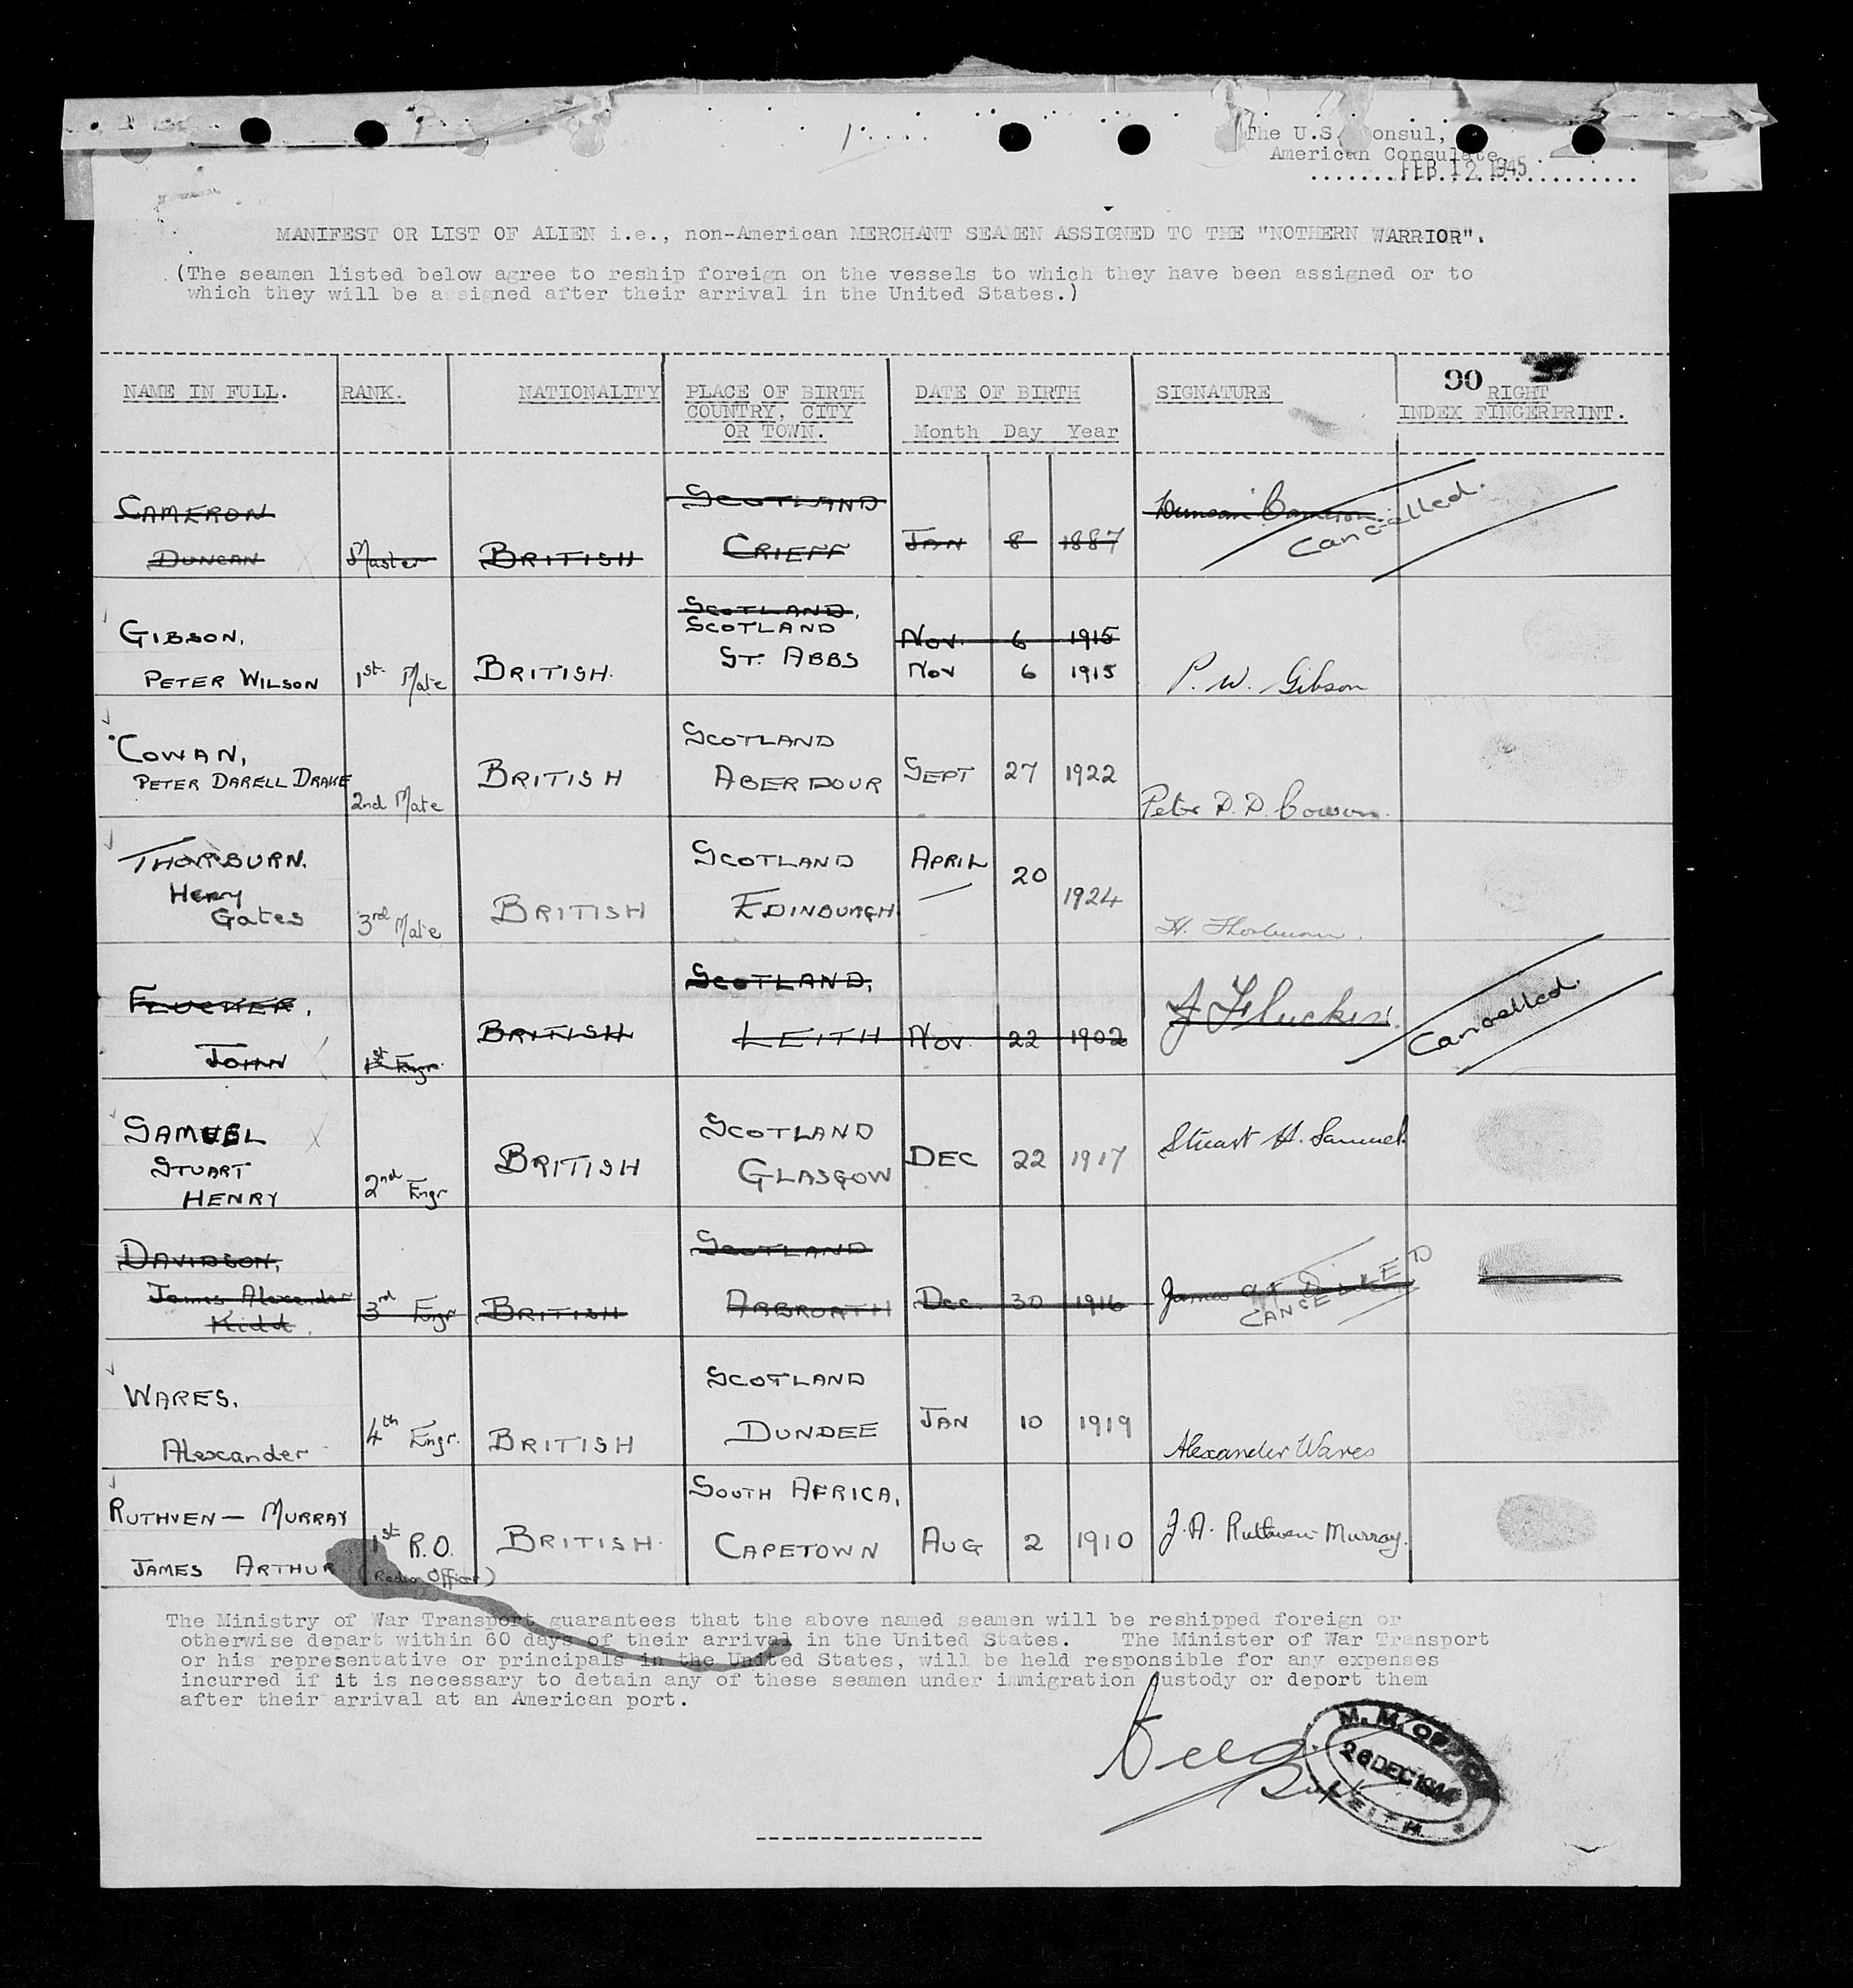 The U.S. Consul,
American Consulate
FEB 12 1945
MANIFEST OR LIST OF ALIEN i.e., non-American MERCHANT SEAMEN ASSIGNED TO THE "NOTHERN WARRIOR".
(The seamen listed below agree to reship foreign on the vessels to which they have been assigned or to
which they will be assigned after their arrival in the United States.)
90
NAME IN FULL. RANK. NATIONALITY PLACE OF BIRTH DATE OF BIRTH SIGNATURE RIGHT
COUNTRY, CITY INDEX FINGERPRINT.
OR TOWN. Month Day Year
CAMERON SCOTLAND Duncan Cameron
DUNCAN Master BRITISH CRIEFF JAN 8 1887 Cancelled.
SCOTLAND,
GIBSON, SCOTLAND Nov. 6 1915
PETER WILSON 1st Mate BRITISH. ST. ABBS Nov 6 1915 P. W. Gibson
COWAN, SCOTLAND
PETER DARELL DRAKE 2nd Mate BRITISH ABERDOUR SEPT 27 1922 Peter D. D. Cowan.
THORBURN. SCOTLAND APRIL 20 1924
Henry
Gates 3rd Mate BRITISH EDINBURGH H. Thorburn.
FLUCKER, SCOTLAND, J Flucker.
JOHN 1st Engr. BRITISH LEITH Nov. 22 1902 Cancelled.
SAMUEL SCOTLAND Stuart H. Samuel.
STUART BRITISH GLASGOW DEC 22 1917
HENRY 2nd Engr
DAVIDSON, SCOTLAND
James Alexander 3rd Engr BRITISH ARBROATH Dec. 30 1916 James
Kidd. CANCELLED
WARES, SCOTLAND
Alexander 4th Engr. BRITISH DUNDEE JAN 10 1919 Alexander Wares
RUTHVEN — MURRAY SOUTH AFRICA,
JAMES ARTHUR 1st R.O. BRITISH. CAPETOWN AUG 2 1910 J. A. Ruthven-Murray.
(Radio Officer)
The Ministry of War Transport guarantees that the above named seamen will be reshipped foreign or
otherwise depart within 60 days of their arrival in the United States. The Minister of War Transport
or his representative or principals in the United States, will be held responsible for any expenses
incurred if it is necessary to detain any of these seamen under immigration custody or deport them
after their arrival at an American port.
M. M. OFFICE
26 DEC 1944
LEITH